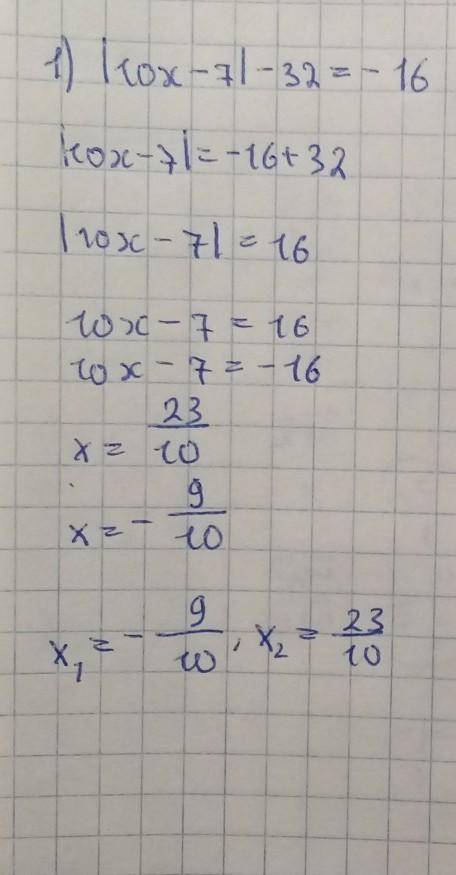 1) |10x - 7| - 32 = - 16
|10x - 7| = -16 + 32
|10x - 7| = 16
10x - 7 = 16
10x - 7 = -16
x = 23/10
x = - 9/10
x₁ = - 9/10, x₂ = 23/10